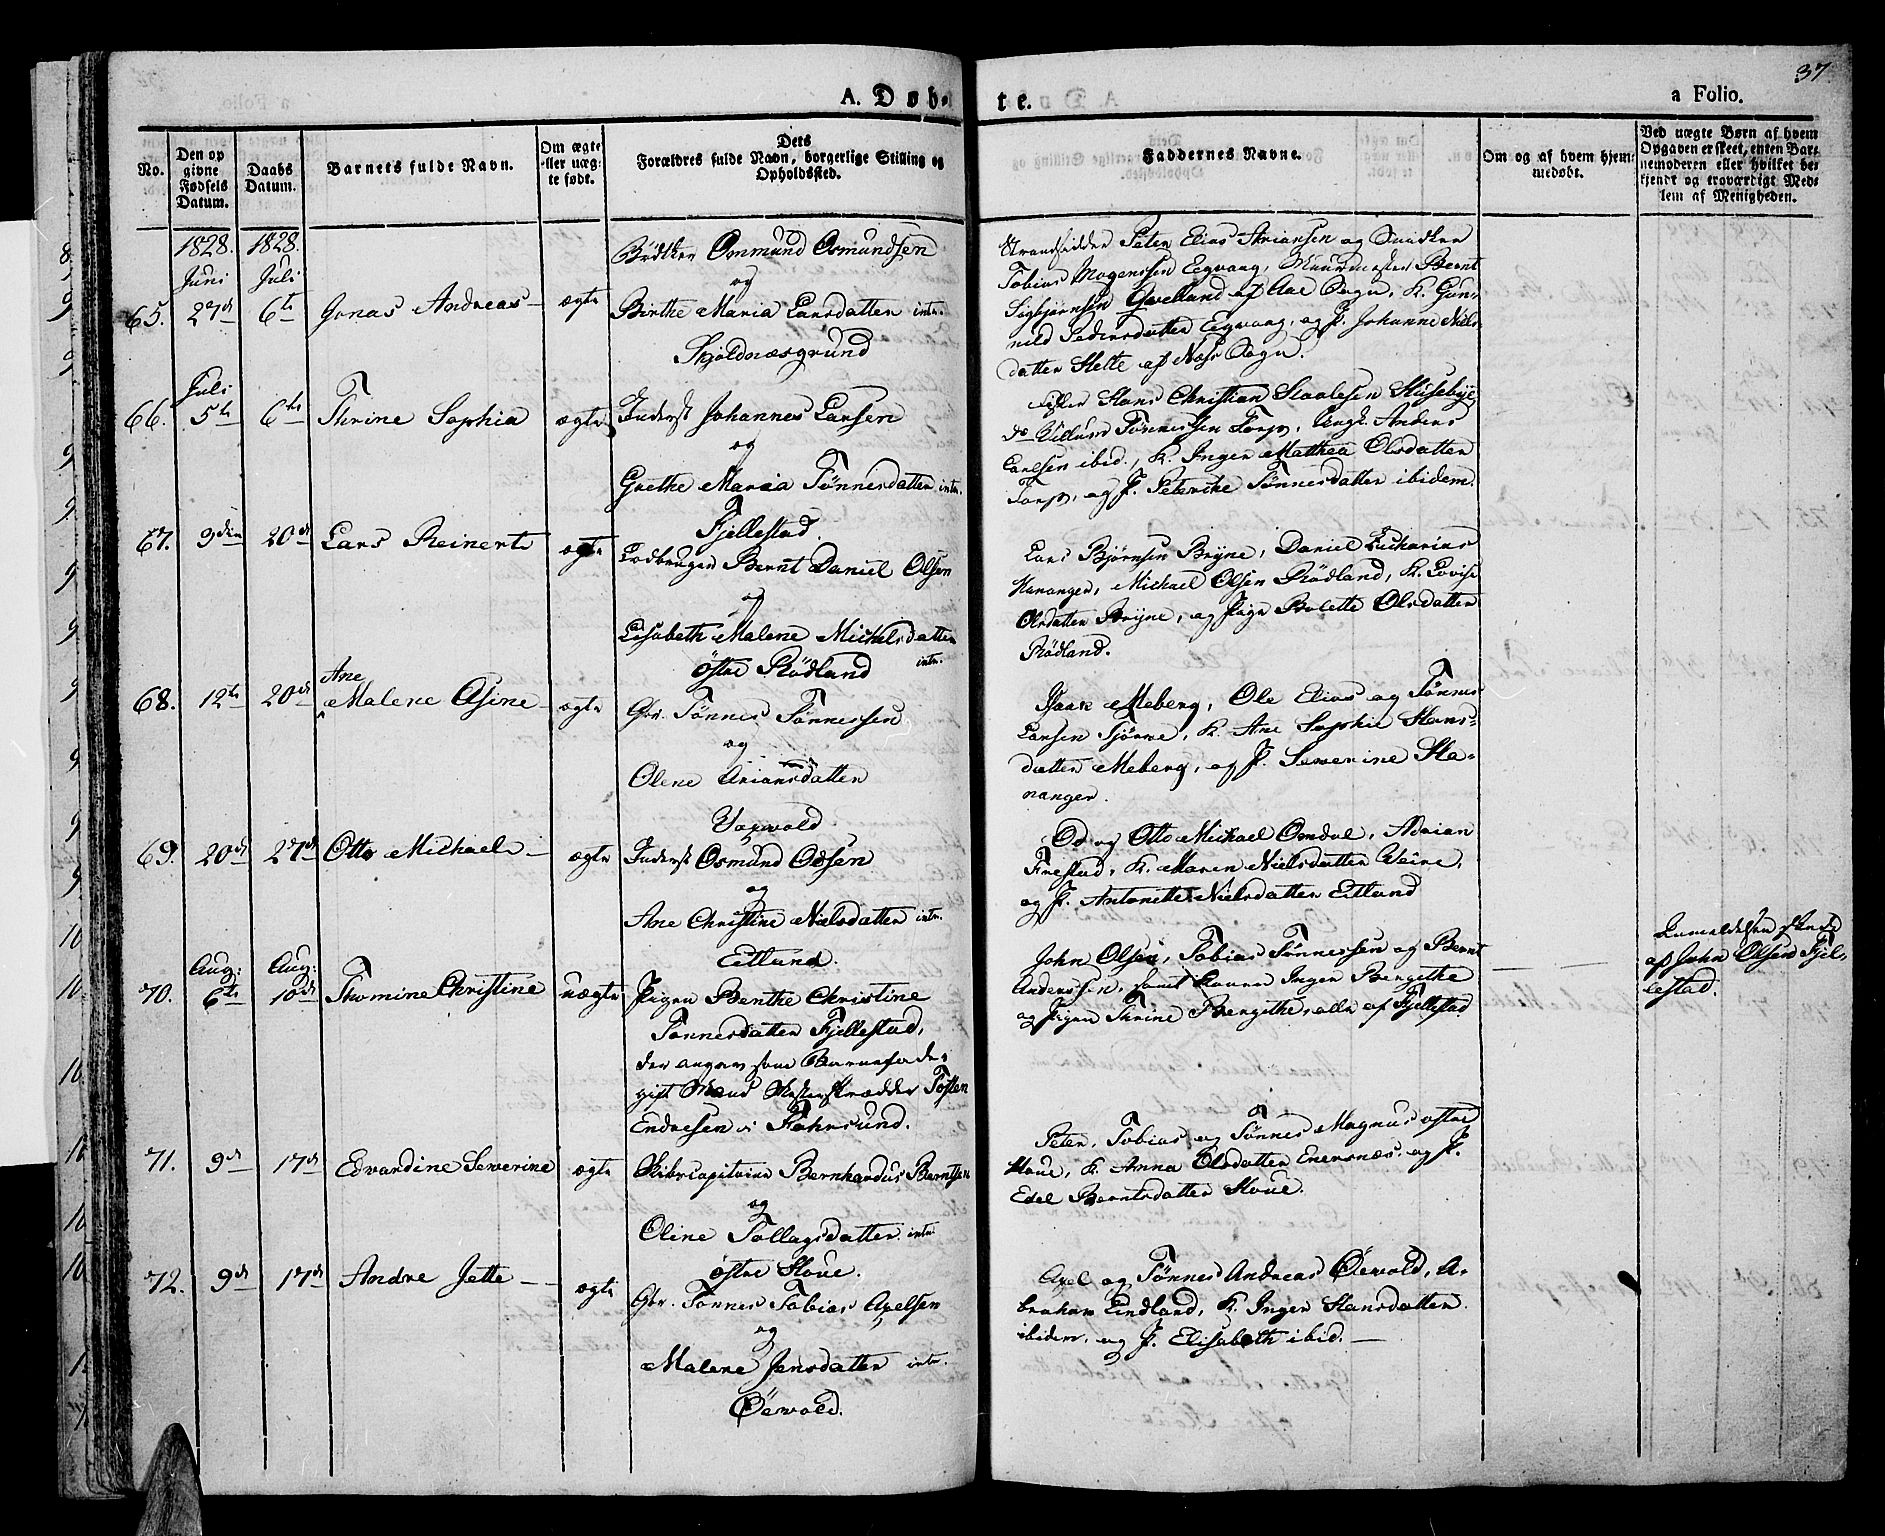 37
A. Døb-
te.
a Folio.
No.
Den op
givne
Fødsels
Datum.
Daabs
Datum.
Barnets fulde Navn.
Om ægte
eller uæg-
te født.
Dets
Forældres fulde Navn, borgerlige Stilling og
Opholdssted.
Faddernes Navne.
Om og af hvem hjem-
medøbt.
Ved uægte Børn af hvem
Opgaven er skeet, enten Bar-
nemoderen eller hvilket be-
kjendt og troværdigt Med-
lem af Menigheden.
1828. 1828.
Juni Juli
65. 27de 6te Jonas Andreas— ægte
Bødker Ommund Osmundsen
og
Birthe Maria Larsdatter intr.
Skjoldnæsgrund
Strandsidder Peter Elias Ariansen og Snidker
Tobias Mogenssen Eegvaag, Muurmester Bernt
Sigbjørnsen Qvelland af Aae Sogn, K. Gun-
nild Pedersdatter Eegvaag, og P. Johanne Niels-
datter Stelle af Næss Sogn.
Juli
66. 5te 6te Thrine Sophia ægte
Inderst Johannes Larsen
og
Grethe Maria Tönnesdatter intr.
Fjellestad.
Hans Christian Staalesen Husebye,
do Villum Tönnessen Torp, Ungk. Anders
Carlsen ibid., K. Inger Matthea Olsdatter
Torp, og P. Petericke Tönnesdatter ibidem.
67. 9den 20de Lars Reinert ægte
Lodbruger Bernt Daniel Olsen
og
Elisabeth Malene Michelsdatter
intr.
östre Rödland
Lars Bjørnsen Bryne, Daniel Zacharias
Hananger, Michael Olsen Rödland, K. Lovise
Olsdatter Bryne, og Pige Bolette Olsdatter
Rödland.
68. 12te 20de Ane
Malene Asine— ægte
Gbr. Tönnes Tönnessen
og
Olene Ariansdatter
Vaxvold
Isaak Meberg, Ole Elias og Tönnes
Larsen Tjörve, K. Ane Sophie Hans-
datter Meberg, og P. Severine Ha-
nanger.
69. 20de 27de Otto Michael— ægte
Inderst Osmund Odsen
og
Ane Christine Nielsdatter intr.
Eitland.
Od og Otto Michael Omdal, Adrian
Frestad, K. Maren Nielsdatter Weire,
og P. Antonette Nielsdatter Eitland
Aug: Aug:
70. 6te 10de Thomine Christine uægte
Pigen Benthe Christine
Tönnesdatter Fjellestad,
der angav som Barnefader
gift Mand Mesterskrædder Tosten
Endresen i Fahrsund.
John Olsen, Tobias Tönnessen og Bernt
Anderssen, samt Konen Inger Bergithe
og Pigen Thrine Bergithe, alle af Fjellestad
Anmeldelsen skede
af John Olsen Fjel-
lestad.
71. 9de 17de Edvardine Severine ægte
Skibscapitaine Bernhardus Berntsen
og
Oline Tollagsdatter intr.
östre Houe.
Peter, Tobias og Tönnes Magnus östre
Houe, K. Anna Olsdatter Enersnæs, og P.
Edel Berntsdatter Houe.
72. 9de 17de Andre Jette— ægte
Gbr. Tönnes Tobias Axelsen
og
Malene Jensdatter intr.
Öevold.
Axel og Tönnes Andreas Öevold, A-
braham Eindland, K. Inger Hansdatter
ibidem, og P. Elisabeth ibid.—